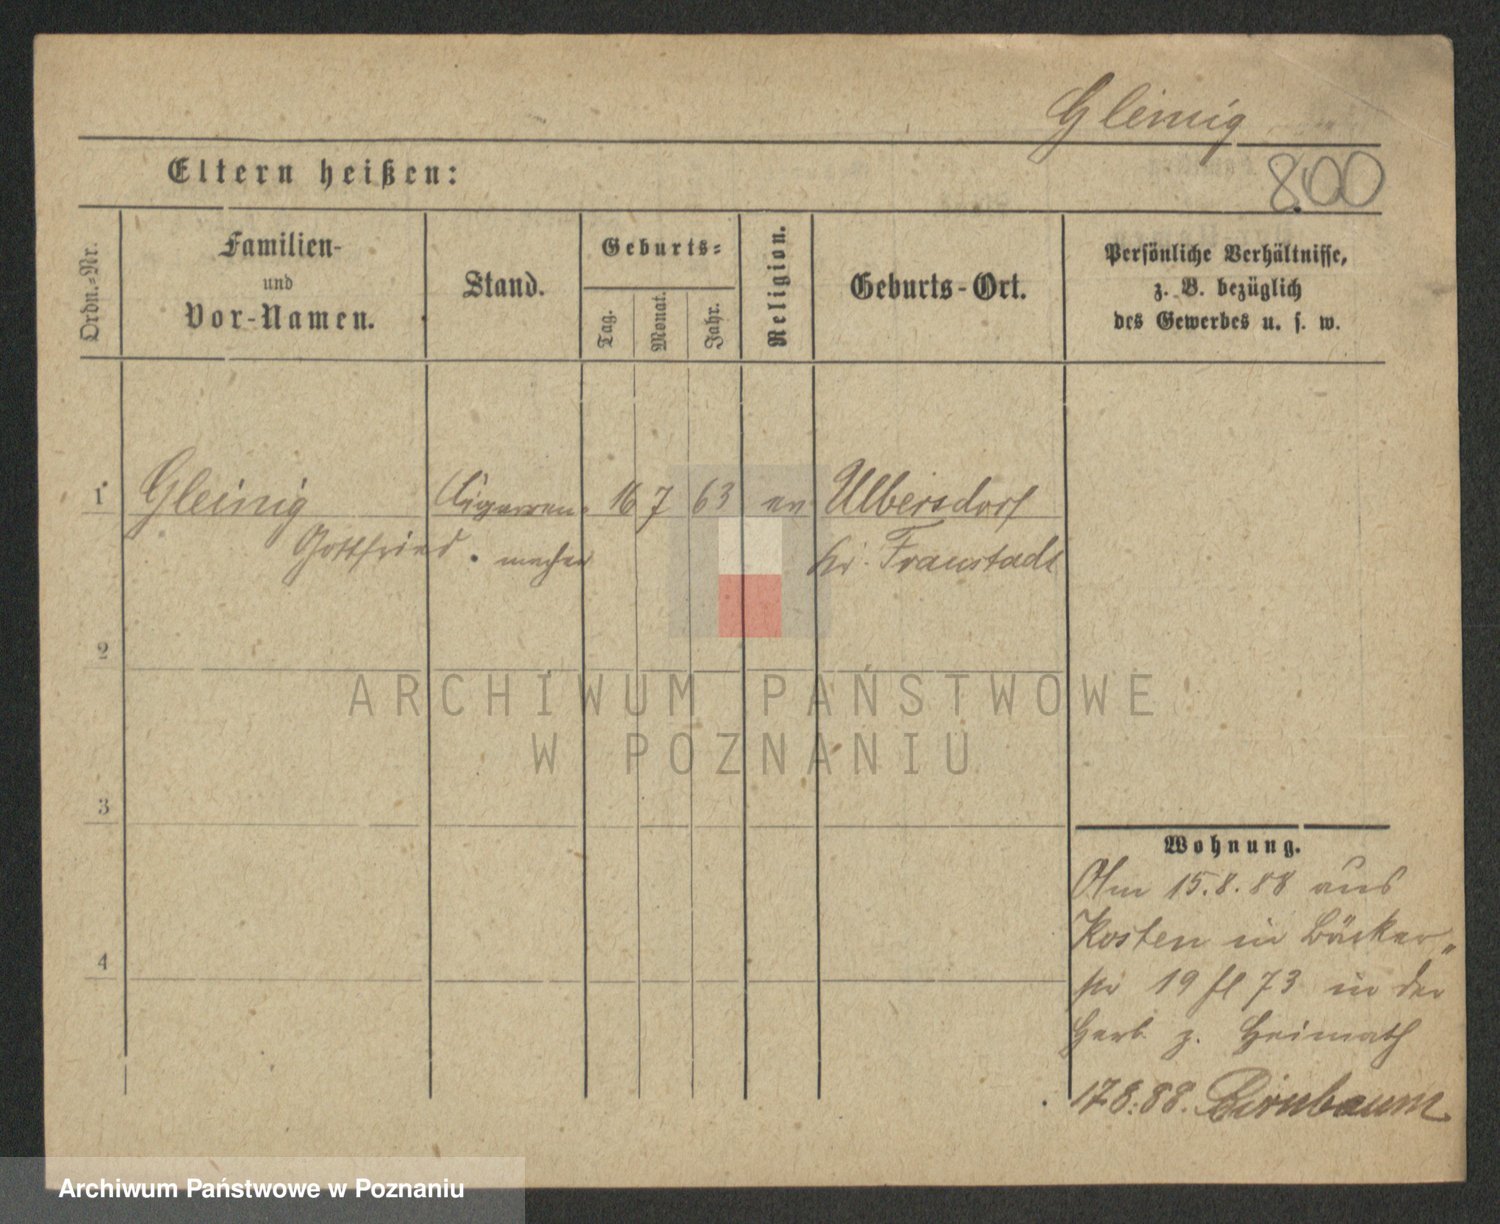 Gleinig
800
Eltern heißen:
Ordn.-Nr.
Familien-
und
Vor-Namen.
Stand.
Geburts-
Tag.
Monat.
Jahr.
Religion.
Geburts-Ort.
Persönliche Verhältnisse,
z. B. bezüglich
des Gewerbes u. s. w.
1 Gleinig Cigarren- 16 7 63 ev Ulbersdorf
Gottfried macher Kr. Fraustadt
2
ARCHIWUM PAŃSTWOWE
W POZNANIU
3
Wohnung.
Am 15.8.88 aus
Kosten in Bäcker
str 19 fl 73 in der
4
Herb. z. Heimath
17.8.88. Birnbaum
Archiwum Państwowe w Poznaniu